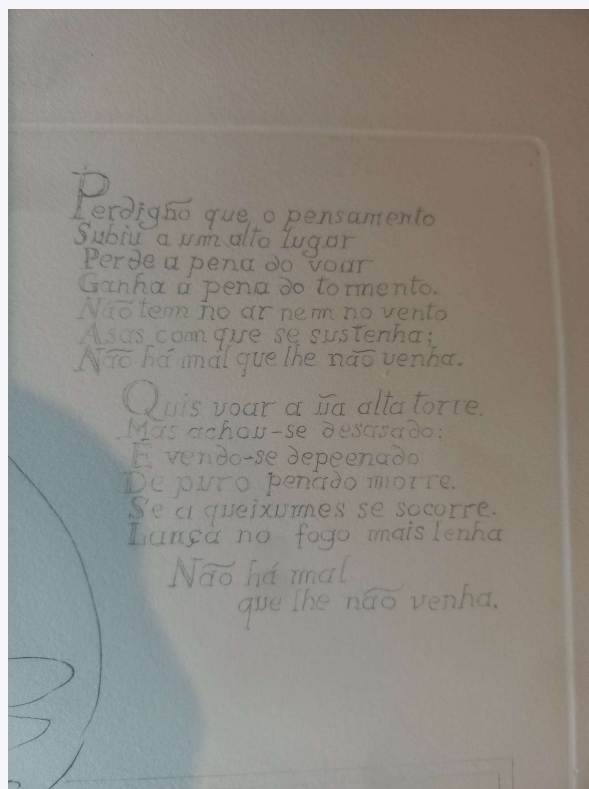 Perdigão que o pensamento
Subiu a um alto lugar
Perde a pena do voar
Ganha a pena do tormento.
Não tem no ar nem no vento
Asas com que se sustenha;
Não há mal que lhe não venha.
Quis voar a ũa alta torre,
Mas achou-se desasado;
E vendo-se depeenado
De puro penado morre.
Se a queixumes se socorre.
Lança no fogo mais lenha
Não há mal
que lhe não venha.